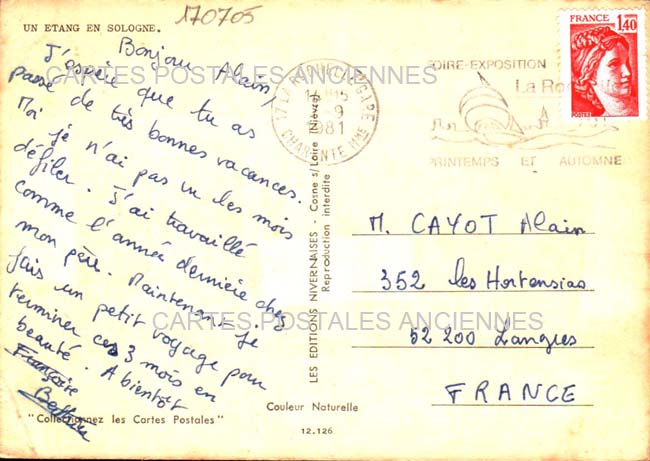 170705
UN ETANG EN SOLOGNE.
Bonjour Alain,
J'espère que tu as
passé de très bonnes vacances.
Moi je n'ai pas vu les mois
défiler. J'ai travaillé
comme l'année dernière chez
mon père. Maintenant je
fais un petit voyage pour
terminer ces 3 mois en
beauté. A bientôt
Françoise
"Collectionnez les Cartes Postales"
CARTES POSTALES ANCIENNES
CARTES POSTALES ANCIENNES
LES EDITIONS NIVERNAISES - Cosne s/Loire (Nièvre)
Reproduction interdite
Couleur Naturelle
12.126
17 LA ROCHELLE GARE
1981
CHARENTE Mme
FOIRE-EXPOSITION
PRINTEMPS ET AUTOMNE
FRANCE
1,40
POSTES
M. CAYOT Alain
352 les Hortensias
52 200 Langres
FRANCE